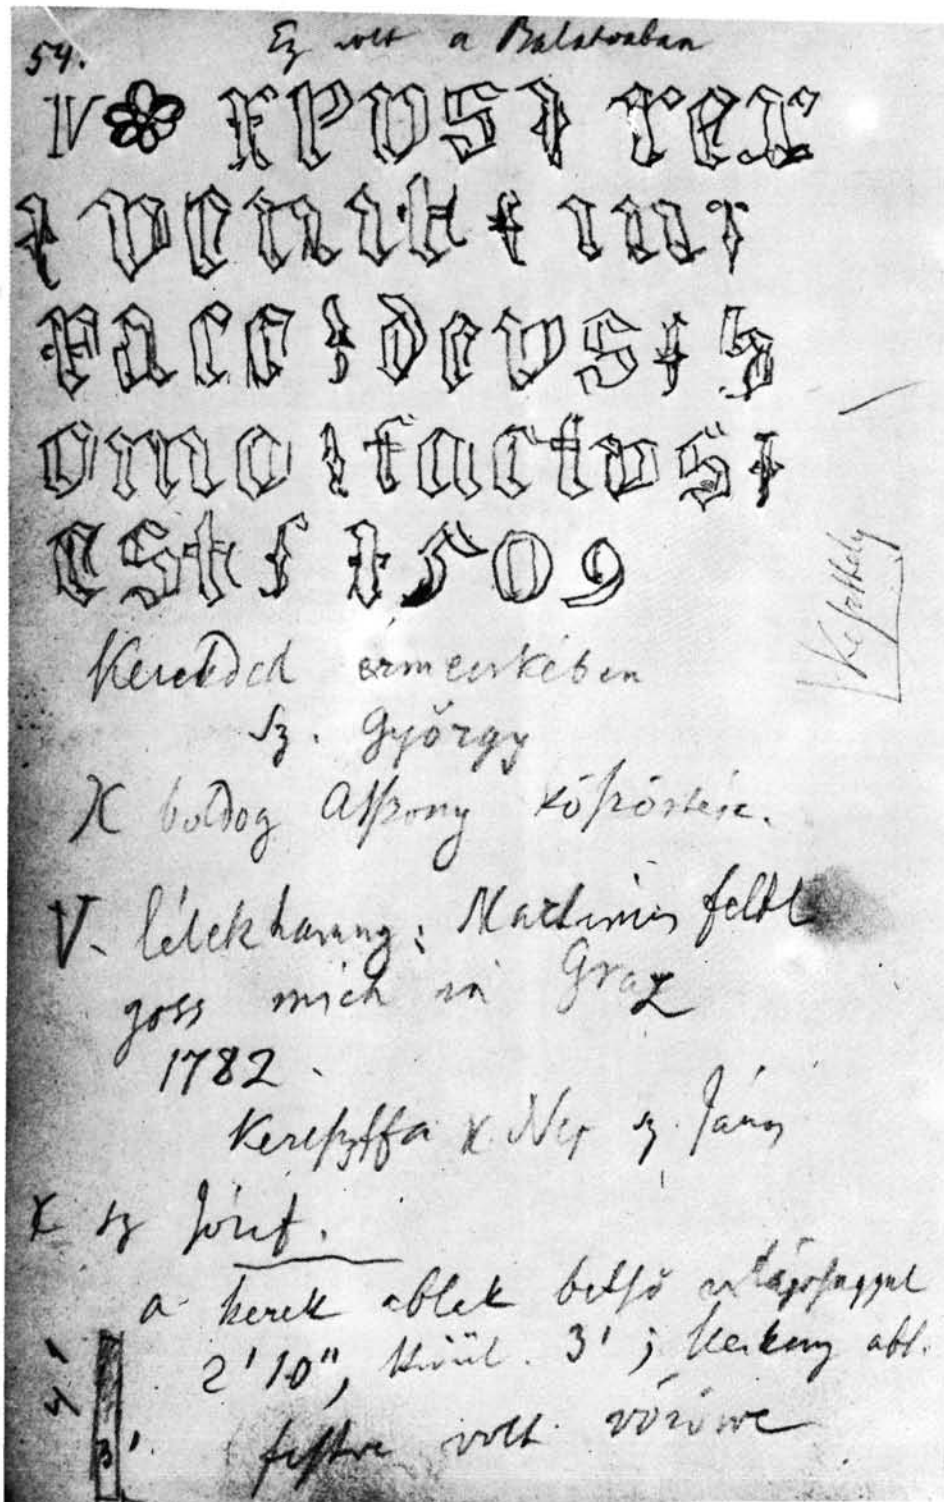 54. Ez volt a Balatonban
IV xpvs rex
venit in
pace devs h
omo factvs
est 1509
Keresded érmecskében
Sz. György
X boldog Aſszony
V. lélekharang: Martinus feltl
goss mich in Graz
1782.
Kereſztfa X. Nep sz. János
X sz Józef.
a kerek ablak belső világoſsággal
2' 10", kívül. 3'; keskeny abl.
3'. feſtve volt vörösre
Keſzthely